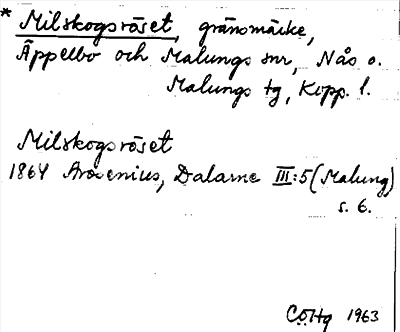 * Milskogsröset, gränsmärke,
Äppelbo och Malungs snr, Nås o.
Malungs tg, Kopp. l.
Milskogsröset
1864 Arosenius, Dalarne III:5 (Malung)
s. 6.
CÖHg 1963